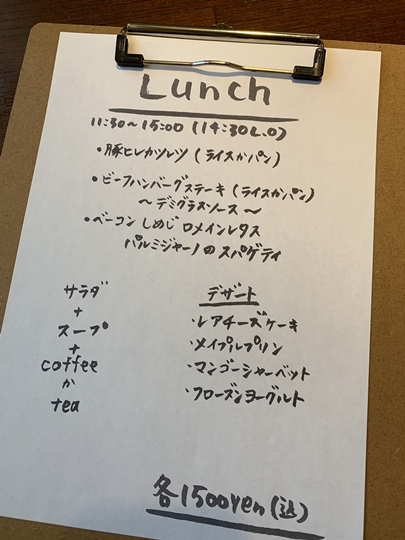 Lunch
11:30〜15:00 (14:30L.O)
・豚ヒレカツレツ (ライスかパン)
・ビーフハンバーグステーキ (ライスかパン)
〜デミグラスソース〜
・ベーコン しめじ ロメインレタス
パルミジャーノのスパゲティ
サラダ
+
スープ
+
coffee
か
tea
デザート
・レアチーズケーキ
・メイプルプリン
・マンゴーシャーベット
・フローズンヨーグルト
各1500yen(込)